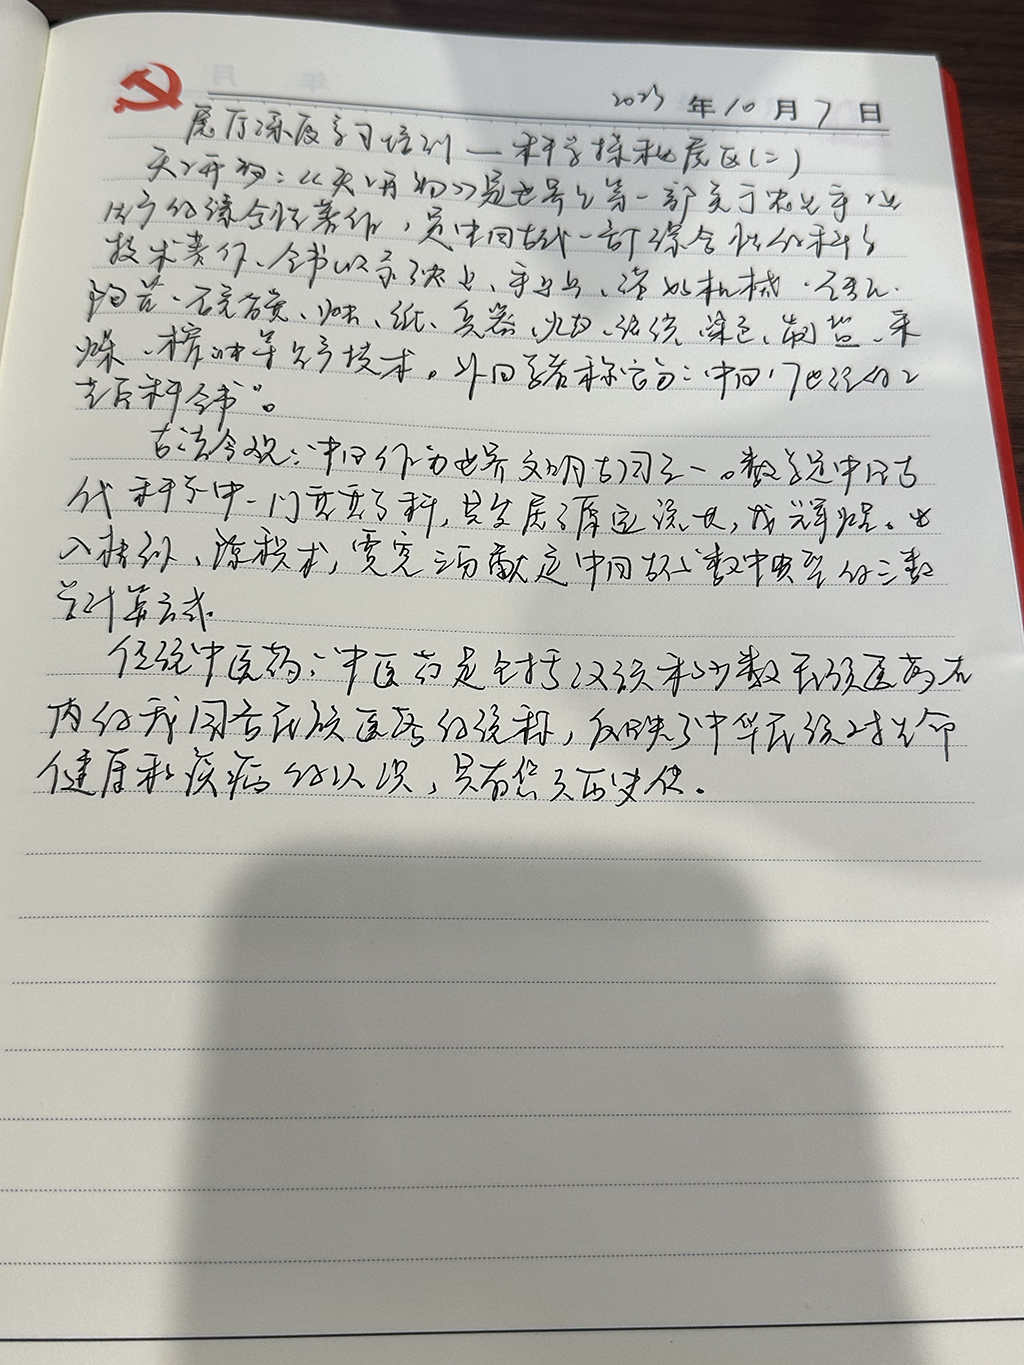 2023年10月7日
展厅深度学习培训—科学探秘展区(二)
天工开物:《天工开物》是世界上第一部关于农业手工业
生产的综合性著作,是中国古代一部综合性的科学
技术著作、全书收录农业、手工业、诸如机械、
陶瓷、硫磺、烛、纸、兵器、火药、纺织、染色、制盐、采
煤、榨油等生产技术。外国学者称它为:中国17世纪的工
艺百科全书”。
古法今观:中国作为世界文明古国之一。数学是中国古
代科学中一门重要学科,其发展源远流长,成就辉煌。出
入相补、
算方式.
传统中医药:中医药是包括汉族和少数民族医药在
内的我国各民族医药的统称,反映了中华民族对生命
健康和疾病的认识,具有悠久历史